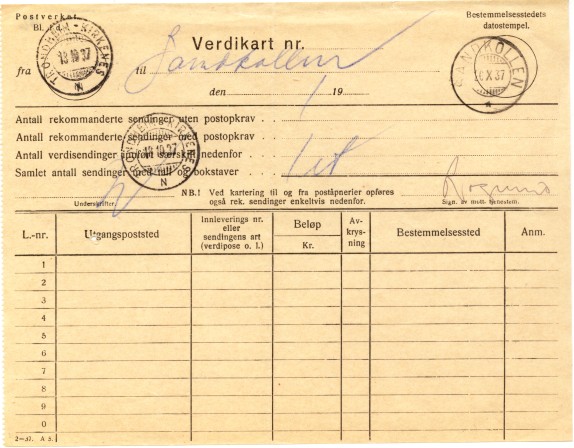 Postverket
Bl.
Bestemmelsesstedets
datostempel.
TRONDHEIM - KIRKENES
18 10 37
N
Verdikart nr.
SANDKOLLEN
X 37
fra
til Sandkollen
den 19
Antall rekommanderte sendinger uten postopkrav 1
Antall rekommanderte sendinger med postopkrav
Antall verdisendinger opført særskilt nedenfor
Samlet antall sendinger med tall og bokstaver 1 et
TRONDHEIM - KIRKENES
18.10.37
N
NB.! Ved kartering til og fra poståpnerier opføres
også rek. sendinger enkeltvis nedenfor.
Underskrifter
Sign. av mott. tjenestem.
L.-nr. Utgangspoststed Innleverings nr. eller sendingens art (verdipose o. l.) Beløp Kr. Av-krys-ning Bestemmelsessted Anm.
1
2
3
4
5
6
7
8
9
0
2—37. A S.